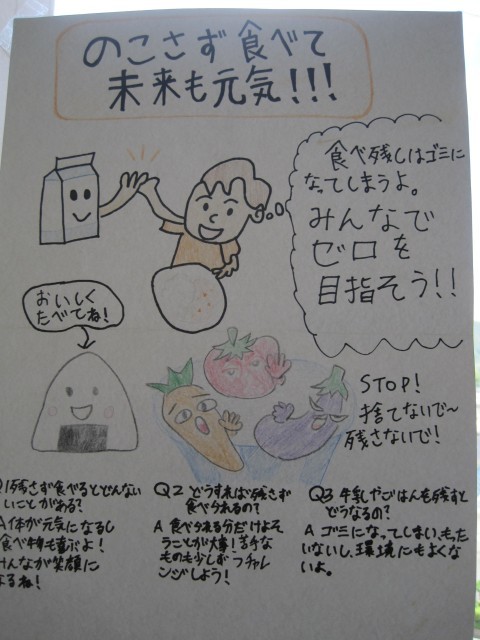 のこさず食べて
未来も元気!!!
食べ残しはゴミに
なってしまうよ。
みんなで
ゼロを
目指そう!!
おいしく
たべてね!
STOP!
捨てないで〜
残さないで!
1残さず食べるとどんない
いことがある?
A体が元気になるし
食べ物も喜ぶよ!
みんなが笑顔に
なるね!
Q2 どうすれば残さず
食べられるの?
A 食べられる分だけよそ
うことが大事!苦手な
ものも少しずつチャレ
ンジしよう!
Q3 牛乳やごはんを残すと
どうなるの?
A ゴミになってしまい、もった
いないし、環境にもよくな
いよ。